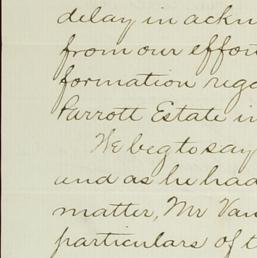 delay in ackn
from our effor
formation rega
Parrott Estate in
We beg to say
and as he had
matter, Mr Van
particulars of t